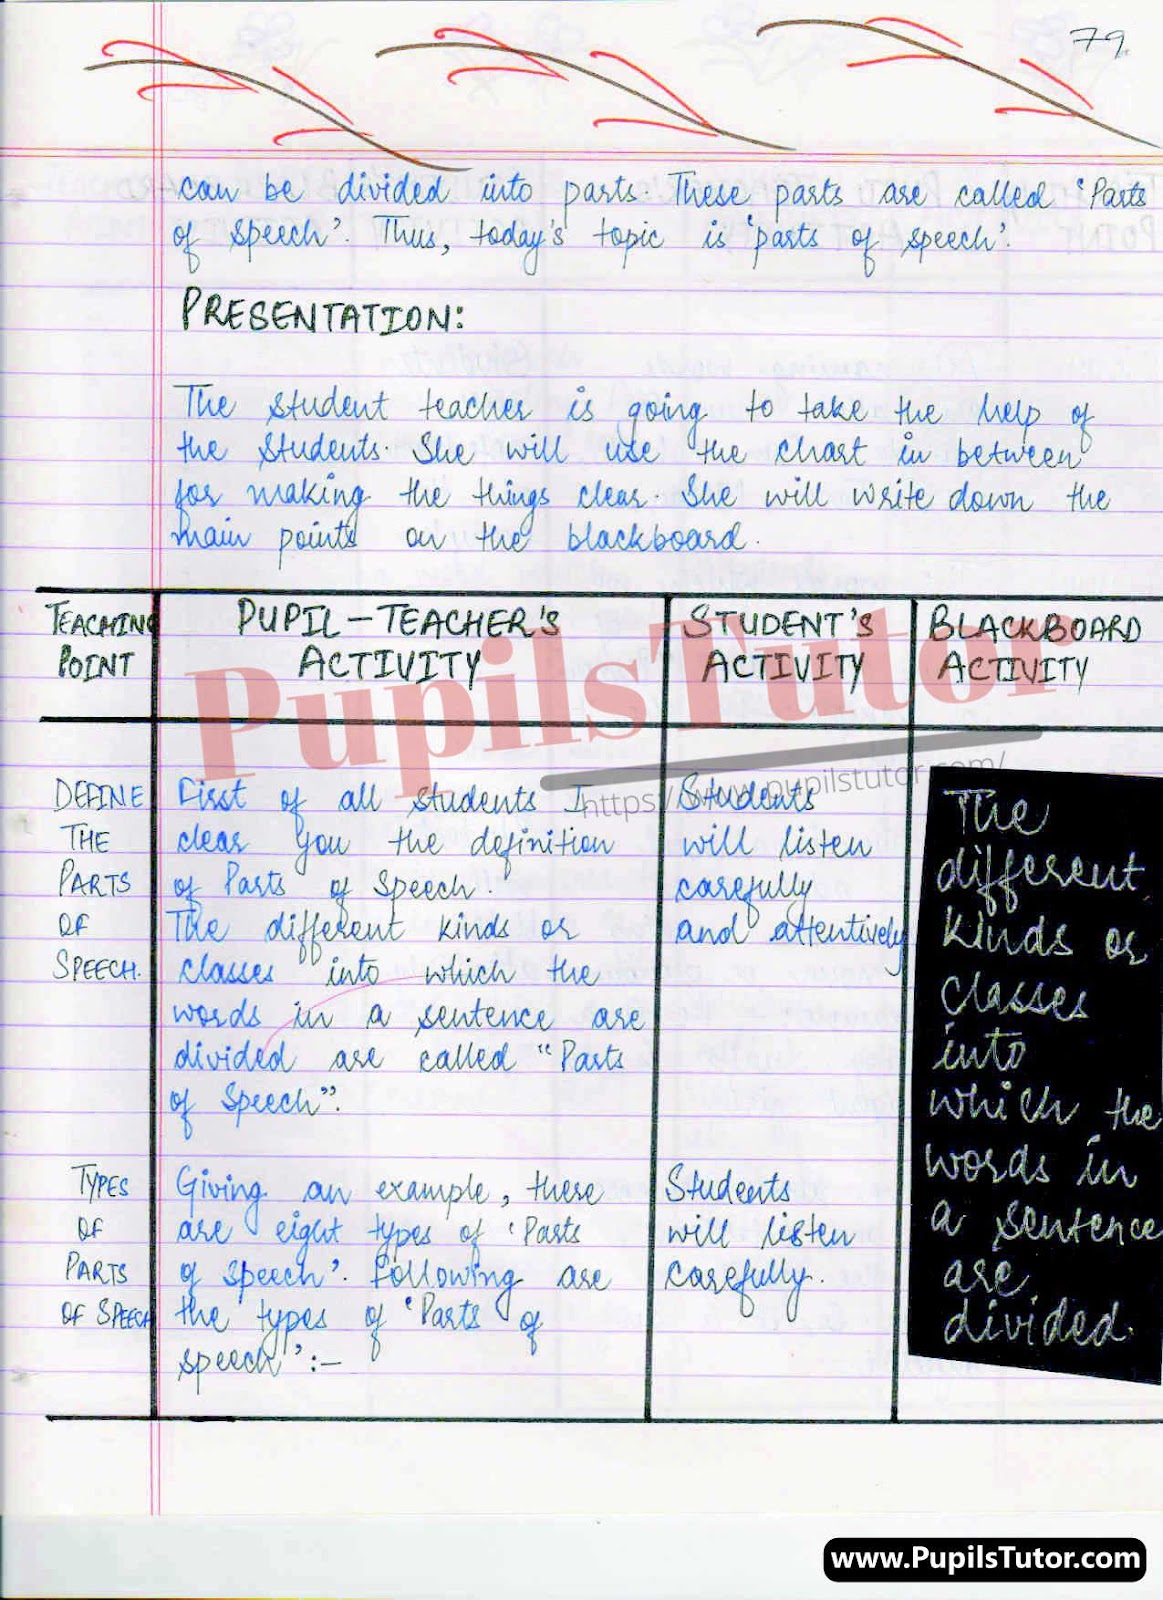 79.
can be divided into parts. These parts are called 'Parts
of speech'. Thus, today's topic is 'parts of speech'.
PRESENTATION:
The student teacher is going to take the help of
the students. She will use the chart in between
for making the things clear. She will write down the
main points on the blackboard.
TEACHING
POINT
PUPIL-TEACHER'S
ACTIVITY
STUDENT'S
ACTIVITY
BLACKBOARD
ACTIVITY
DEFINE
THE
PARTS
OF
SPEECH.
First of all students I
clear you the definition
of Parts of Speech.
The different kinds or
classes into which the
words in a sentence are
divided are called "Parts
of Speech".
Students
will listen
carefully
and attentively
The
different
kinds or
classes
into
which the
words in
a sentence
are
divided.
TYPES
OF
PARTS
OF SPEECH
Giving an example, there
are eight types of 'Parts
of speech'. Following are
the types of 'Parts of
speech':-
Students
will listen
carefully.
PupilsTutor
https://www.pupilstutor.com/
www.PupilsTutor.com